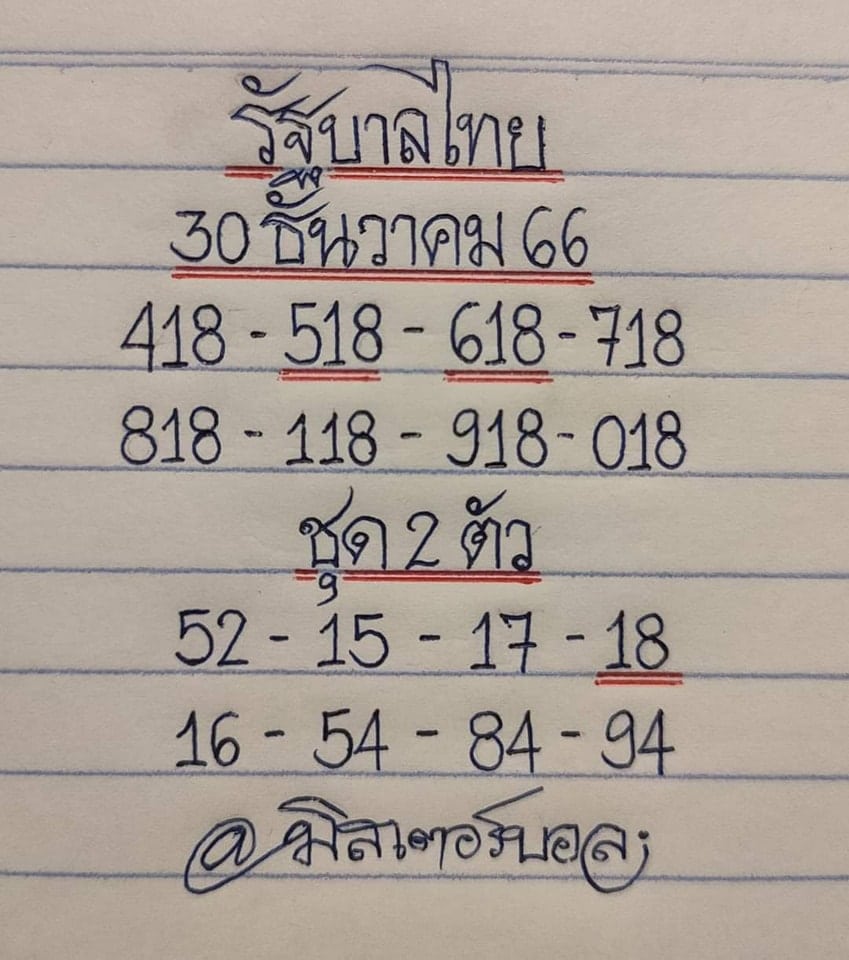 รัฐบาลไทย
30 ธันวาคม 66
418 - 518 - 618 - 718
818 - 118 - 918 - 018
ชุด 2 ตัว
52 - 15 - 17 - 18
16 - 54 - 84 - 94
@มิสเตอร์บอล;